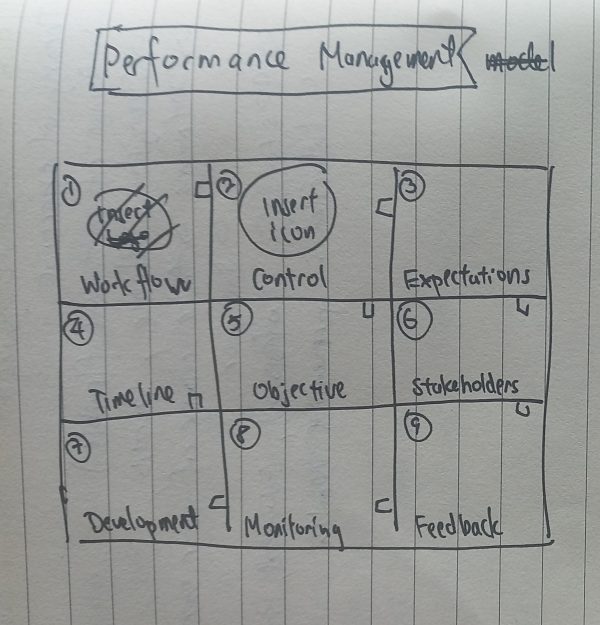 Performance Management model
① ② ③
Insert
Insert icon
Workflow Control Expectations
④ ⑤ ⑥
Timeline Objective Stakeholders
⑦ ⑧ ⑨
Development Monitoring Feedback